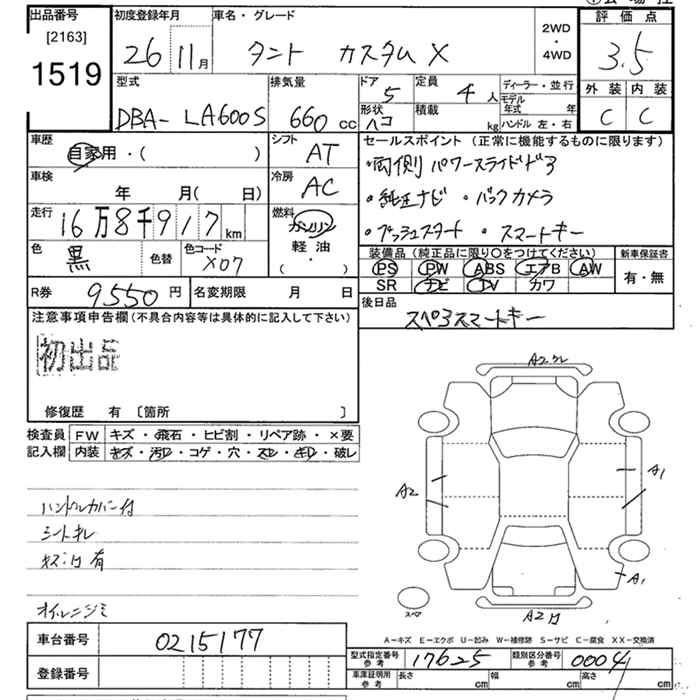 出品番号
[2163]
1519
初度登録年月
26 11月
車名・グレード
タント カスタム X
2WD
・
4WD
評価点
3.5
外装 内装
C C
型式
DBA- LA600S
排気量
660 cc
ドア
5
形状
ハコ
定員
4 人
積載
kg
ディーラー・並行
モデル年式 年
ハンドル 左・右
車歴
自家用・( )
シフト
AT
車検
年 月( 日)
冷房
AC
走行
16万8千917 km
燃料
ガソリン
軽油
・( )
色
黒
色替
色コード
X07
セールスポイント (正常に機能するものに限ります)
・両側パワースライドドア
・純正ナビ ・バックカメラ
・プッシュスタート ・スマートキー
装備品 (純正品に限り○をつけてください)
PS PW ABS エアB AW
SR ナビ TV カワ
新車保証書
有・無
R券 9550 円
名変期限 月 日
後日品
スペアスマートキー
注意事項申告欄(不具合内容等は具体的に記入して下さい)
初出品
修復歴 有 [箇所 ]
検査員記入欄
FW キズ・飛石・ヒビ割・リペア跡・×要
内装 キズ・汚レ・コゲ・穴・スレ・キレ・破レ
ハンドルカバー付
シートキレ
オイルニジミ
A2
A1
A1
スペア
A-キズ E-エクボ U-凹み W-補修跡 S-サビ C-腐食 XX-交換済
車台番号 0215177
登録番号
型式指定番号 参考 17625
類別区分番号 参考 0004
車庫証明用 参考 長さ cm 幅 cm 高さ cm